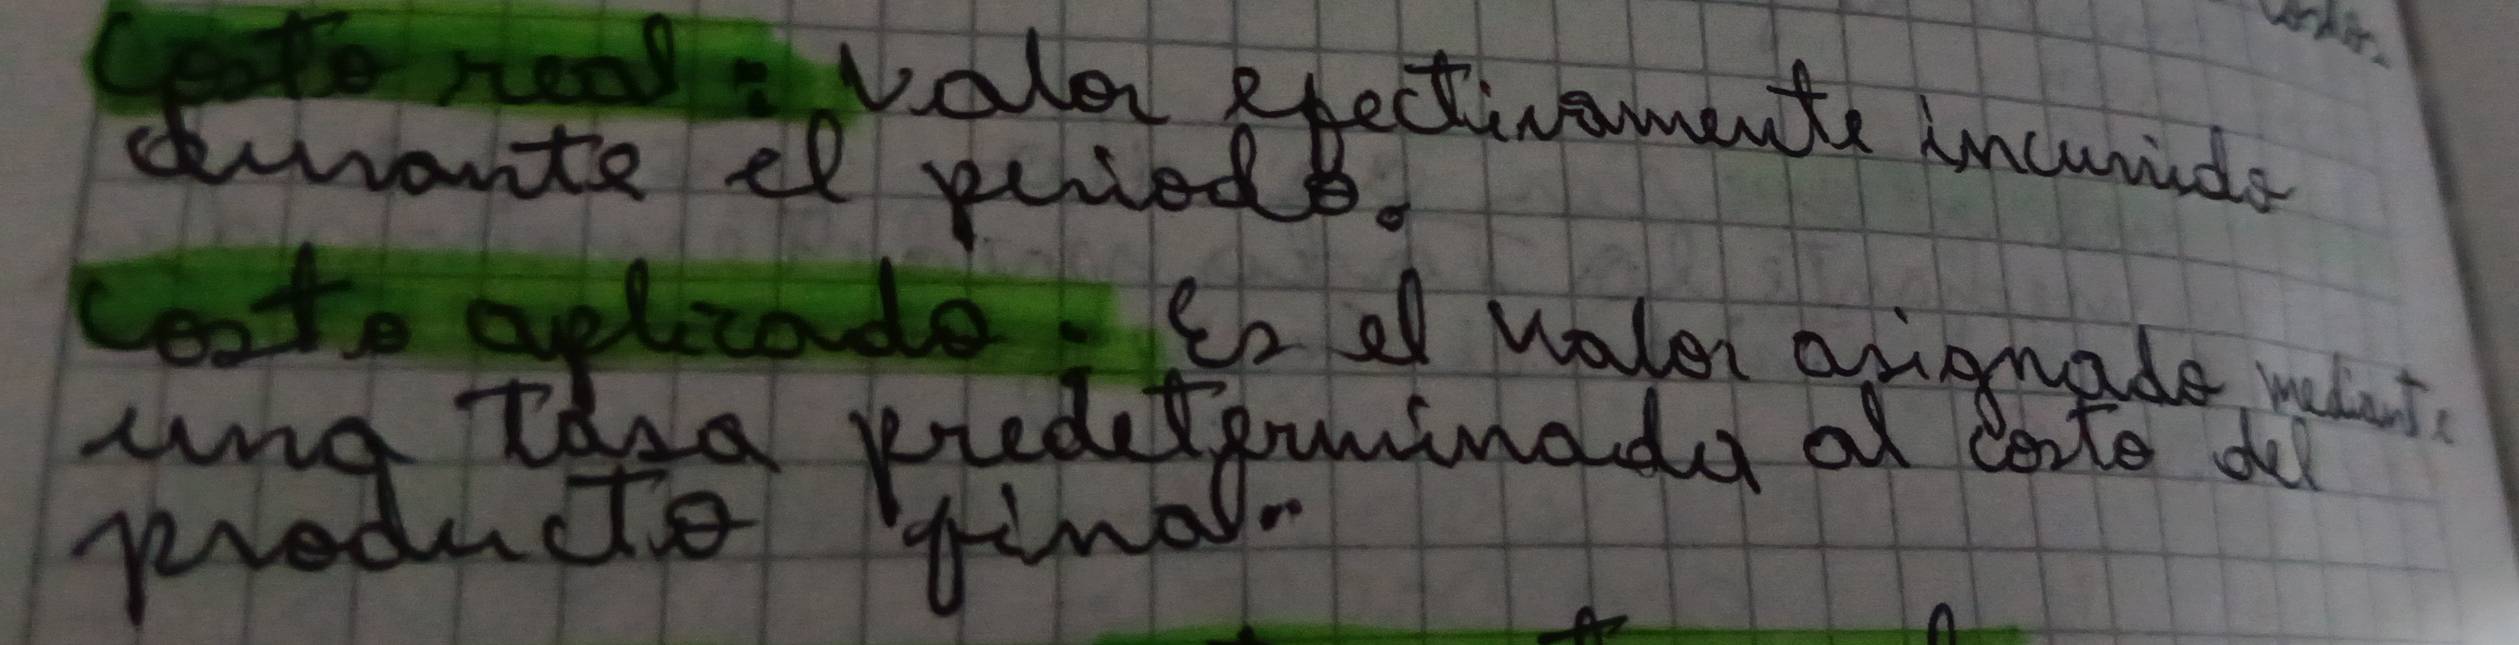 Costo real: Valor efectivamente incurrido
durante el periodo.
Costo aplicado: Es el valor asignado mediante
una tasa predeterminada al costo del
producto final.